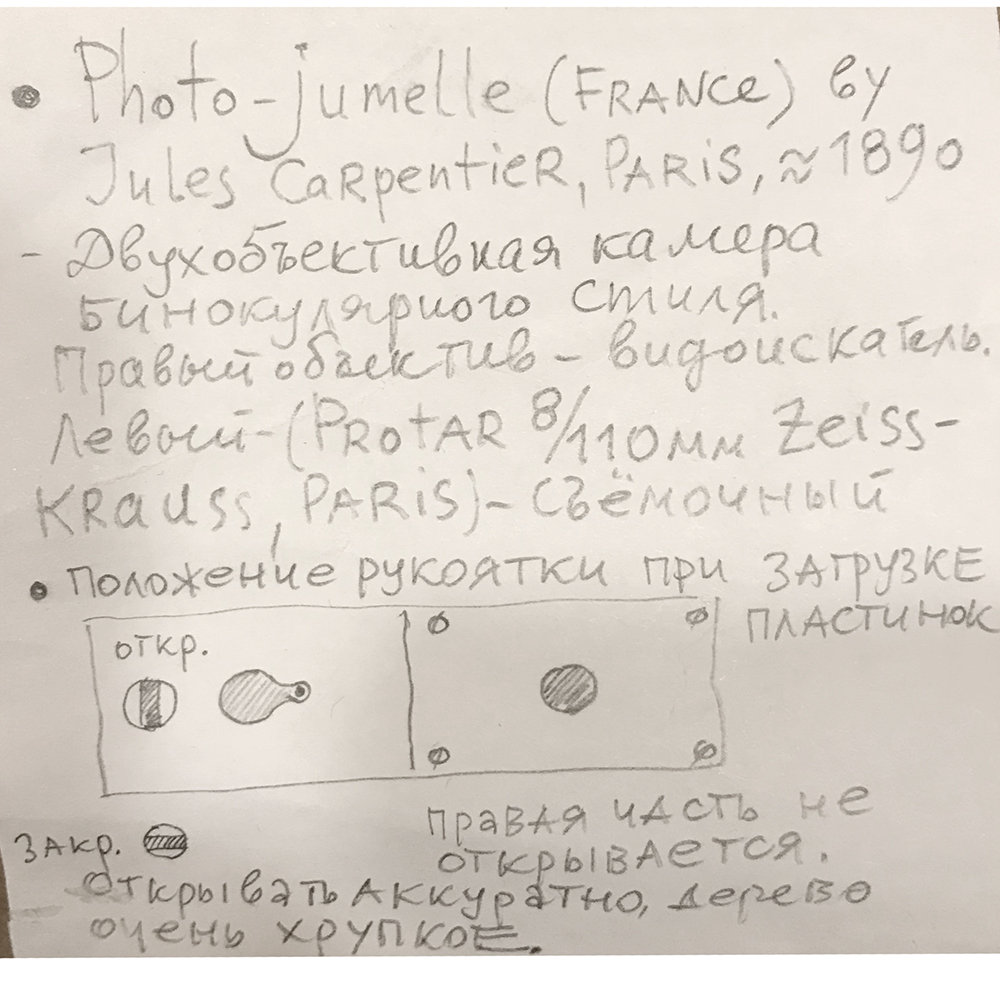 • Photo-jumelle (FRANCE) by
Jules CaRpentieR, PARiS, ≈1890
- Двухобъективная камера
бинокулярного стиля.
Правый объектив – видоискатель.
Левый-(PROtAR 8/110мм Zeiss-
KRauss, PARiS)-съёмочный
• Положение рукоятки при ЗАГРУЗКЕ
ПЛАСТИНОК
откр.
правая часть не
открывается.
ЗАКР.
открывать аккуратно, дерево
очень хрупкое.